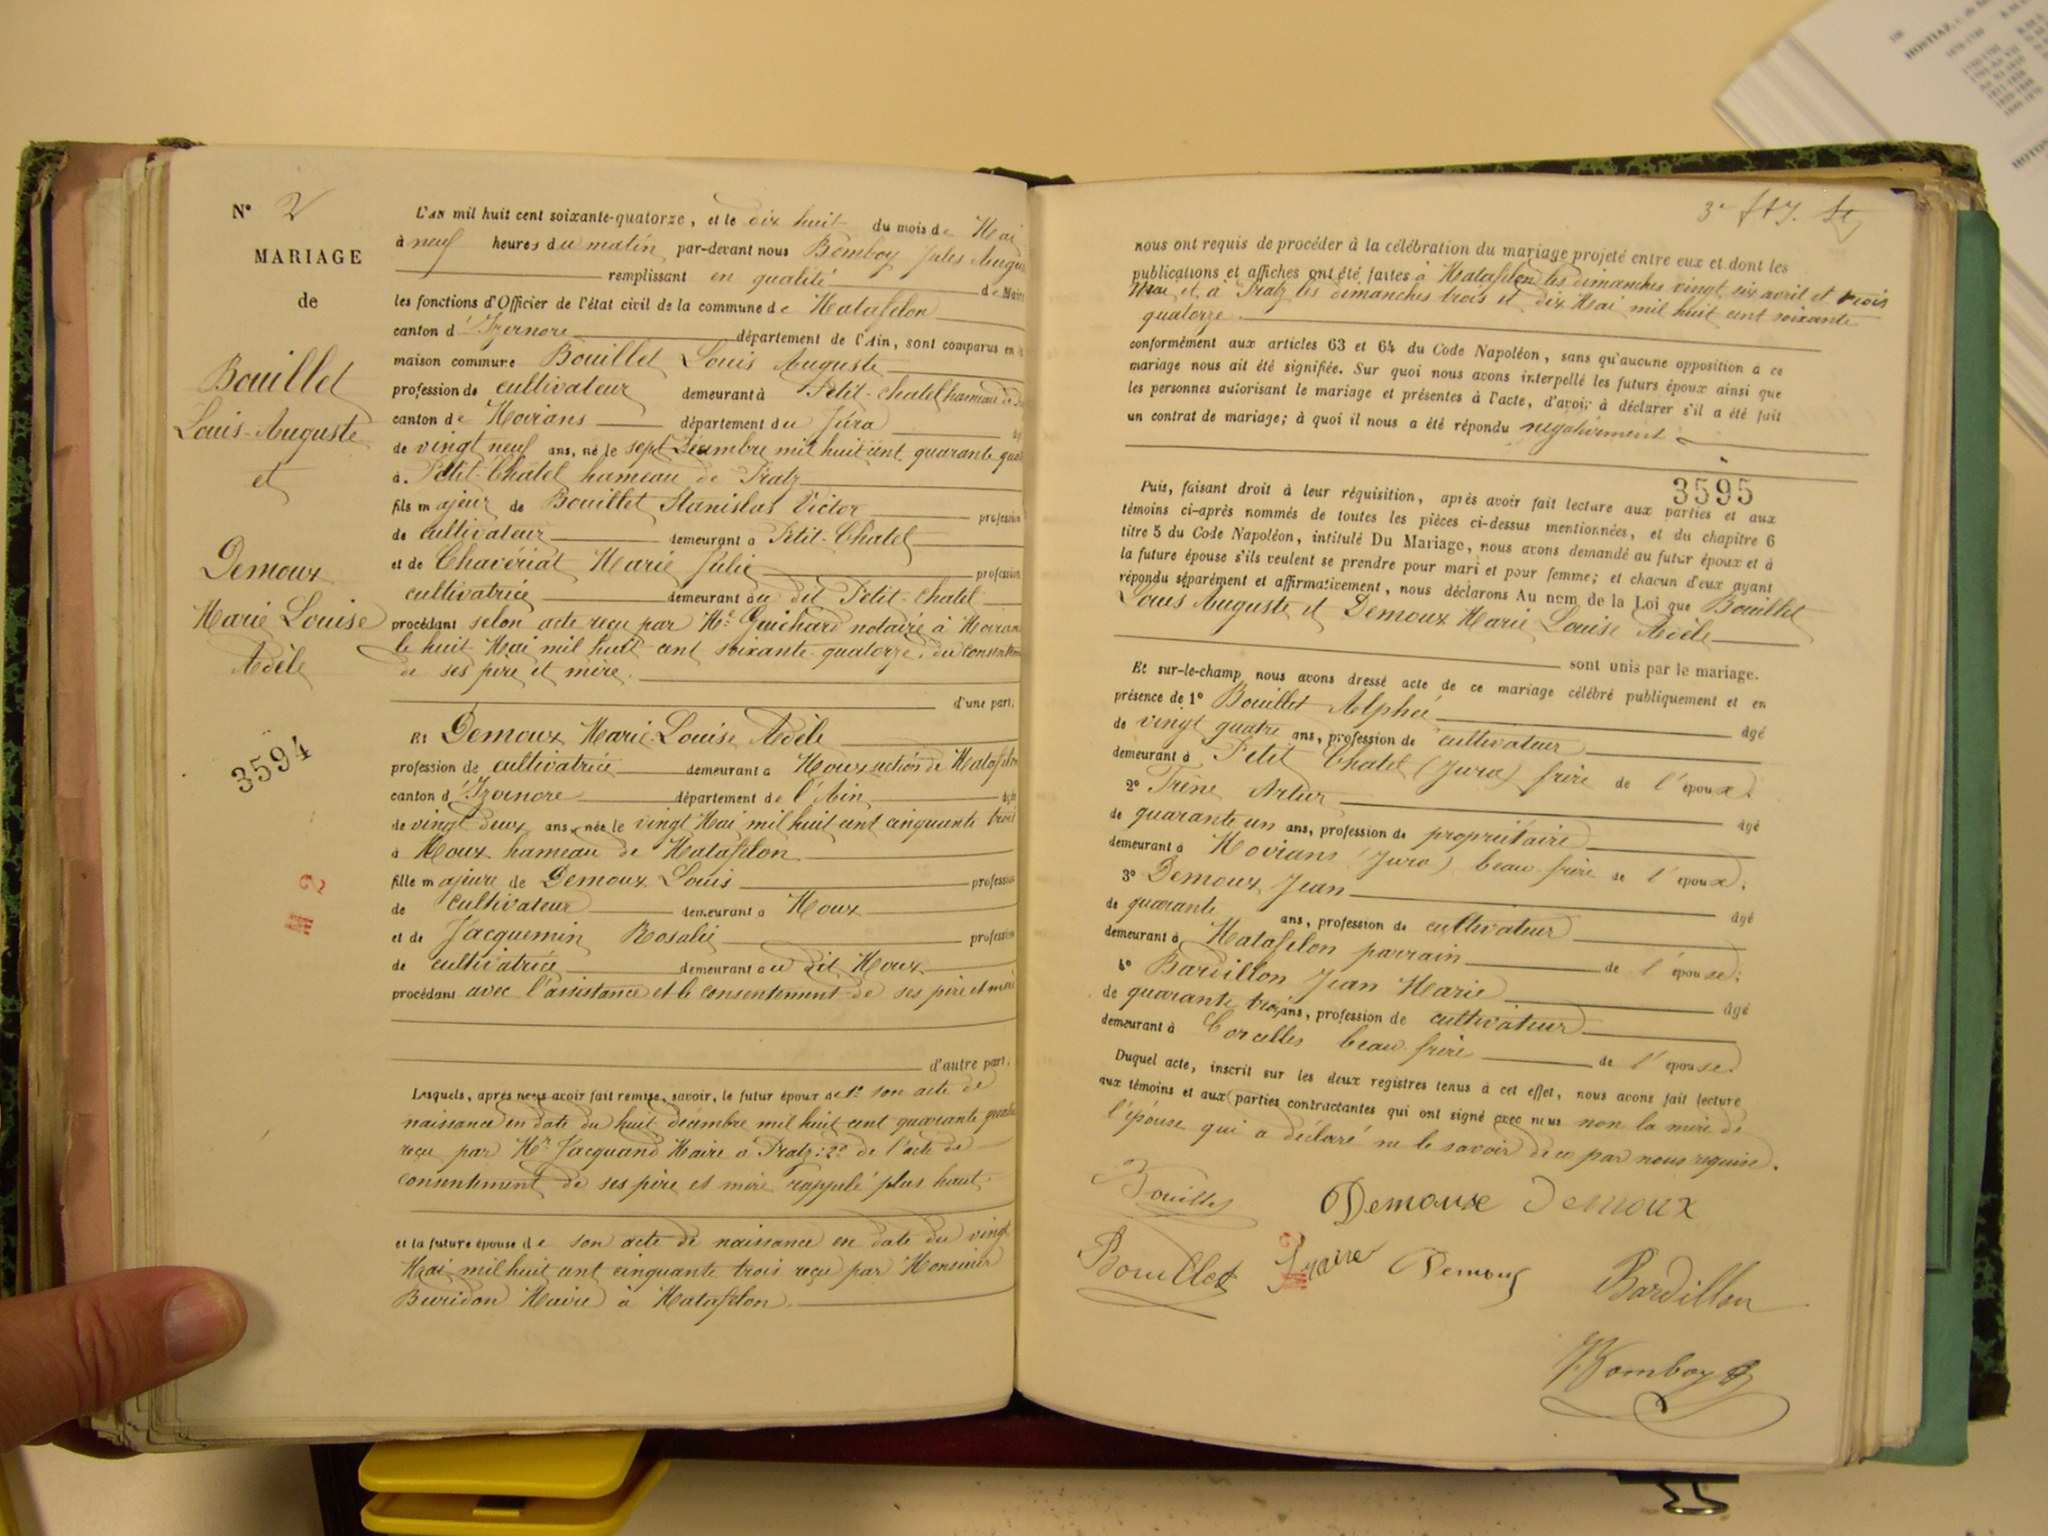 N° 2
MARIAGE
de
Bouillet
Louis-Auguste
et
Demoux
Marie Louise
Adèle
3594
L'AN mil huit cent soixante-quatorze, et le dix huit du mois de Mai
à neuf heures du matin par-devant nous Bomboy Jules Augus
remplissant en qualité de Maire
les fonctions d'Officier de l'état civil de la commune de Matafelon
canton d'Izernore département de l'Ain, sont comparus en
maison commune Bouillet Louis Auguste
profession de cultivateur demeurant à Petit-Chatel hameau de
canton de Moirans département du Jura
de vingt neuf ans, né le sept Décembre mil huit cent quarante quat
à Petit-Chatel hameau de Pratz
fils majeur de Bouillet Stanislas Victor profession
de cultivateur demeurant à Petit-Chatel
et de Chavériat Marie Julie profession
cultivatrice demeurant au dit Petit-Chatel
procédant selon acte reçu par Me Guichard notaire à Moirans
le huit Mai mil huit cent soixante-quatorze, du consentem
de ses père et mère.
d'une part;
Et Demoux Marie-Louise Adèle
profession de cultivatrice demeurant à Moux section de Matafelon
canton d'Izernore département de l'Ain âgée
de vingt deux ans, née le vingt Mai mil huit cent cinquante trois
à Moux hameau de Matafelon
fille majeure de Demoux Louis profession
de cultivateur demeurant à Moux
et de Jacquemin Rosalie profession
de cultivatrice demeurant au dit Moux
procédant avec l'assistance et le consentement de ses père et mère
d'autre part.
Lesquels, après nous avoir fait remise, savoir, le futur époux de 1° son acte de
naissance en date du huit décembre mil huit cent quarante quatre
reçu par Mr Jacquand Maire à Pratz: 2° de l'acte de
consentement de ses père et mère rappelé plus haut.
et la future épouse de son acte de naissance en date du vingt
Mai mil huit cent cinquante trois reçu par Monsieur
Buridon Maire à Matafelon.
nous ont requis de procéder à la célébration du mariage projeté entre eux et dont les
publications et affiches ont été faites à Matafelon les dimanches vingt six avril et trois
Mai et à Pratz les dimanches trois et dix Mai mil huit cent soixante
quatorze
conformément aux articles 63 et 64 du Code Napoléon, sans qu'aucune opposition à ce
mariage nous ait été signifiée. Sur quoi nous avons interpellé les futurs époux ainsi que
les personnes autorisant le mariage et présentes à l'acte, d'avoir à déclarer s'il a été fait
un contrat de mariage; à quoi il nous a été répondu négativement
3595
Puis, faisant droit à leur réquisition, après avoir fait lecture aux parties et aux
témoins ci-après nommés de toutes les pièces ci-dessus mentionnées, et du chapitre 6
titre 5 du Code Napoléon, intitulé Du Mariage, nous avons demandé au futur époux et à
la future épouse s'ils veulent se prendre pour mari et pour femme; et chacun d'eux ayant
répondu séparément et affirmativement, nous déclarons Au nom de la Loi que Bouillet
Louis Auguste et Demoux Marie Louise Adèle
sont unis par le mariage.
Et sur-le-champ nous avons dressé acte de ce mariage célébré publiquement et en
présence de 1° Bouillet Alphée âgé
de vingt quatre ans, profession de cultivateur
demeurant à Petit Chatel (Jura) frère de l'époux.
2° Trène Artur âgé
de quarante un ans, profession de propriétaire
demeurant à Moirans (Jura) beau-frère de l'époux;
3° Demoux Jean âgé
de quarante ans, profession de cultivateur
demeurant à Matafelon parrain de l'épouse;
4° Bardillon Jean Marie âgé
de quarante trois ans, profession de cultivateur
demeurant à Corcelles beau-frère de l'épouse.
Duquel acte, inscrit sur les deux registres tenus à cet effet, nous avons fait lecture
aux témoins et aux parties contractantes qui ont signé avec nous non la mère de
l'épouse qui a déclaré ne le savoir de ce par nous requise.
Bouillet Demoux Demoux
Bouillet Demoux Bardillon
J. Bomboy